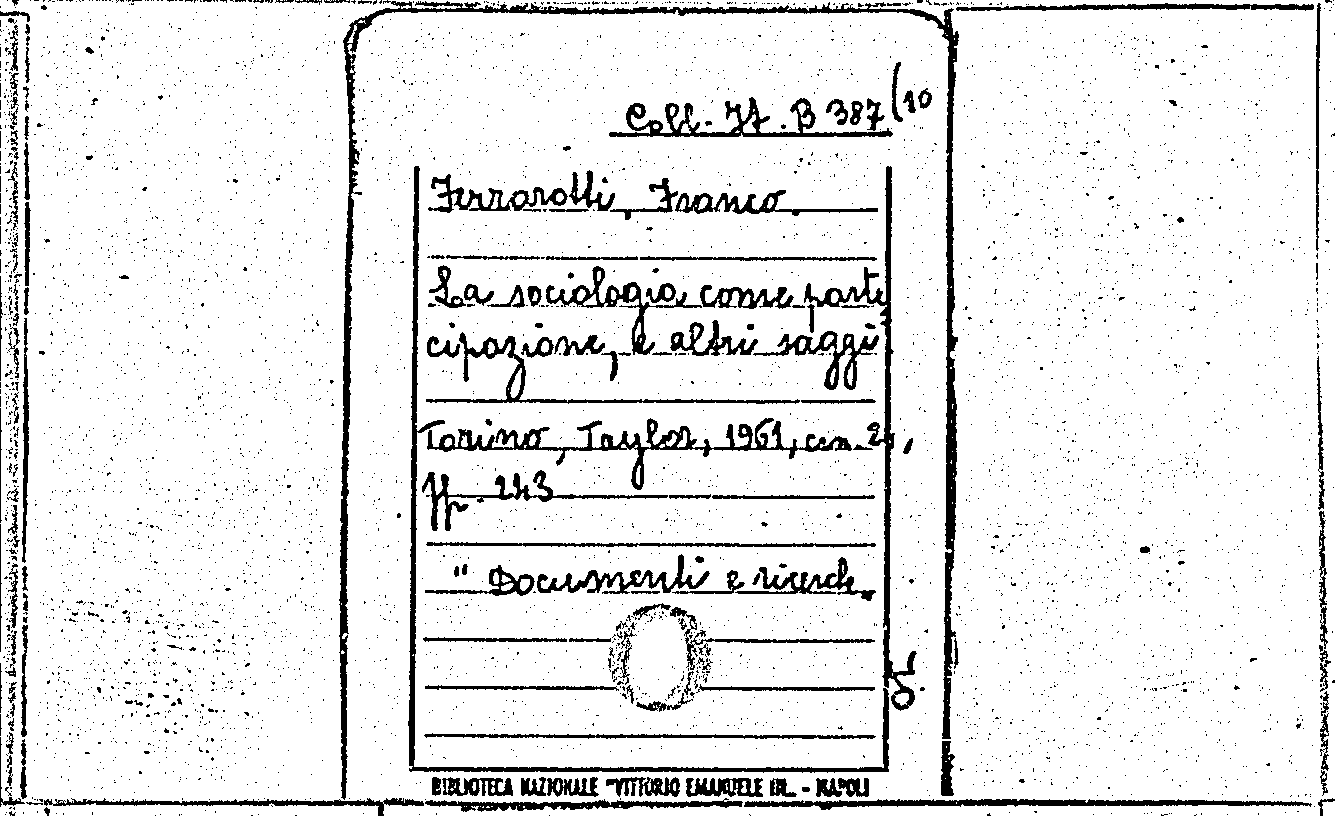 Coll. It. B 387/10
Ferrarotti, Franco.
La sociologia come parte
cipazione, e altri saggi
Torino, Taylor, 1961, cm. 2 ,
pp. 243
" Documenti e ricerche "
BIBLIOTECA NAZIONALE "VITTORIO EMANUELE III" - NAPOLI